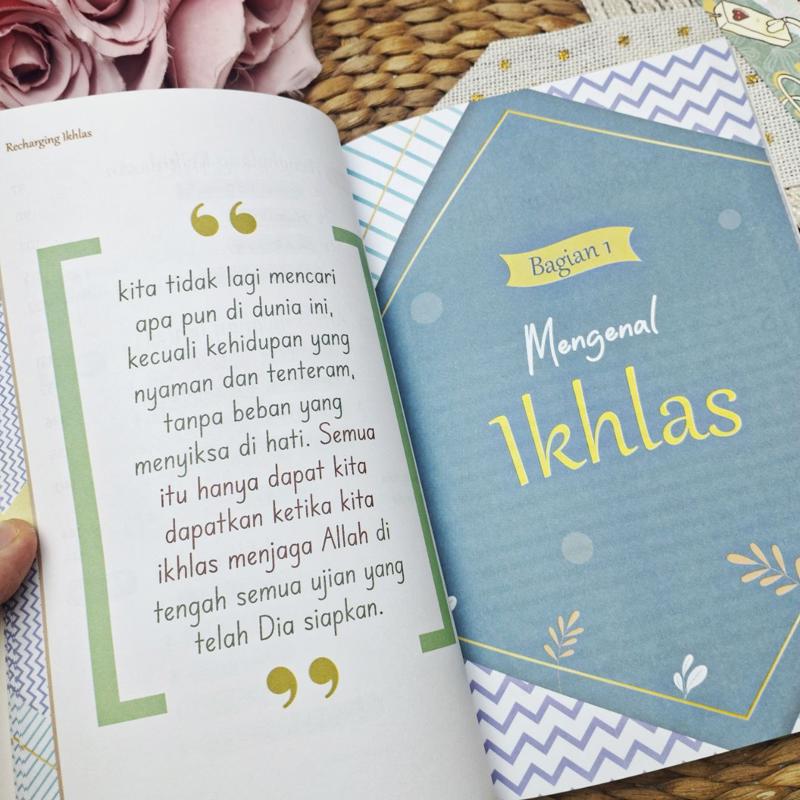 Recharging Ikhlas
kita tidak lagi mencari
apa pun di dunia ini,
kecuali kehidupan yang
nyaman dan tenteram,
tanpa beban yang
menyiksa di hati. Semua
itu hanya dapat kita
dapatkan ketika kita
ikhlas menjaga Allah di
tengah semua ujian yang
telah Dia siapkan.
Bagian 1
Mengenal
Ikhlas